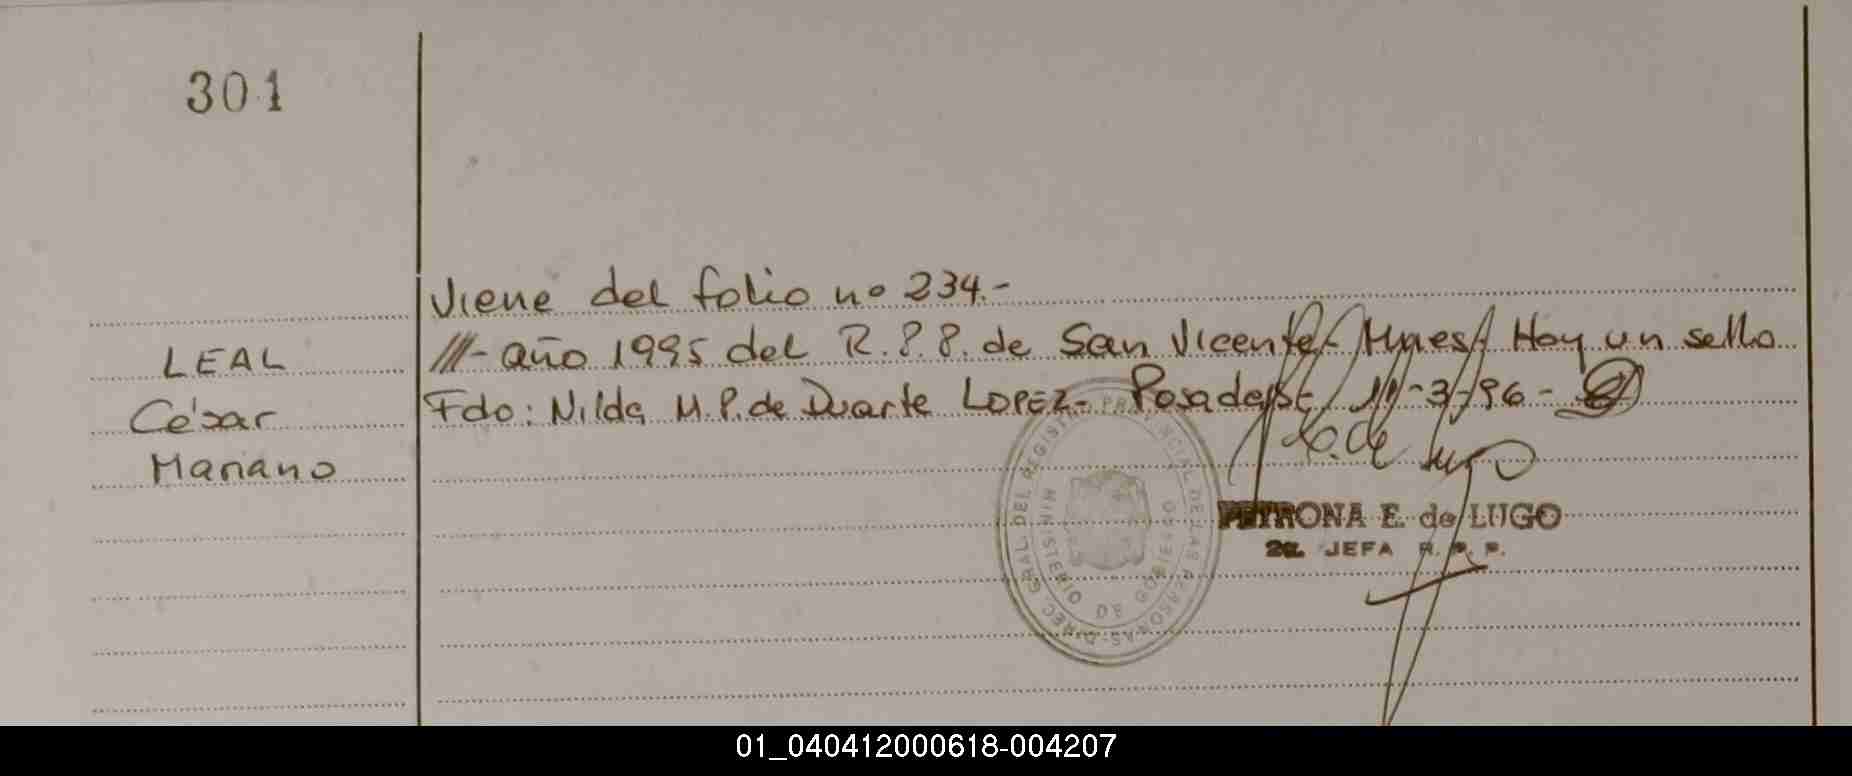 301
Viene del folio nº 234.-
LEAL
///- año 1995 del R.P.P. de San Vicente- Mnes/ Hay un sello
César
Fdo: Nilda M.P. de Duarte LOPEZ- Posadas, 11-3-96-
Mariano
E. de Lugo
PETRONA E. de LUGO
2a. JEFA R. P. P.
DIREC. GRAL. DEL REGISTRO PROVINCIAL DE LAS PERSONAS
MINISTERIO DE GOBIERNO
01_040412000618-004207